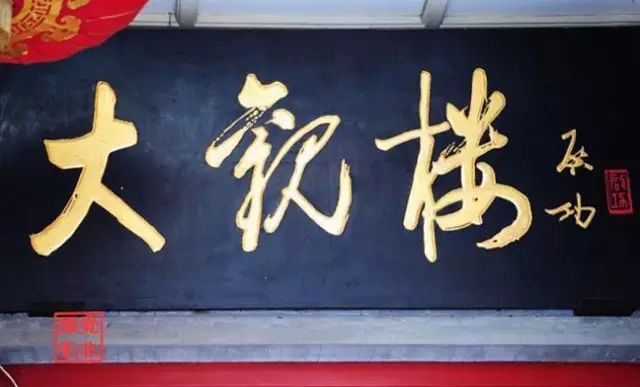 大觀楼
启功